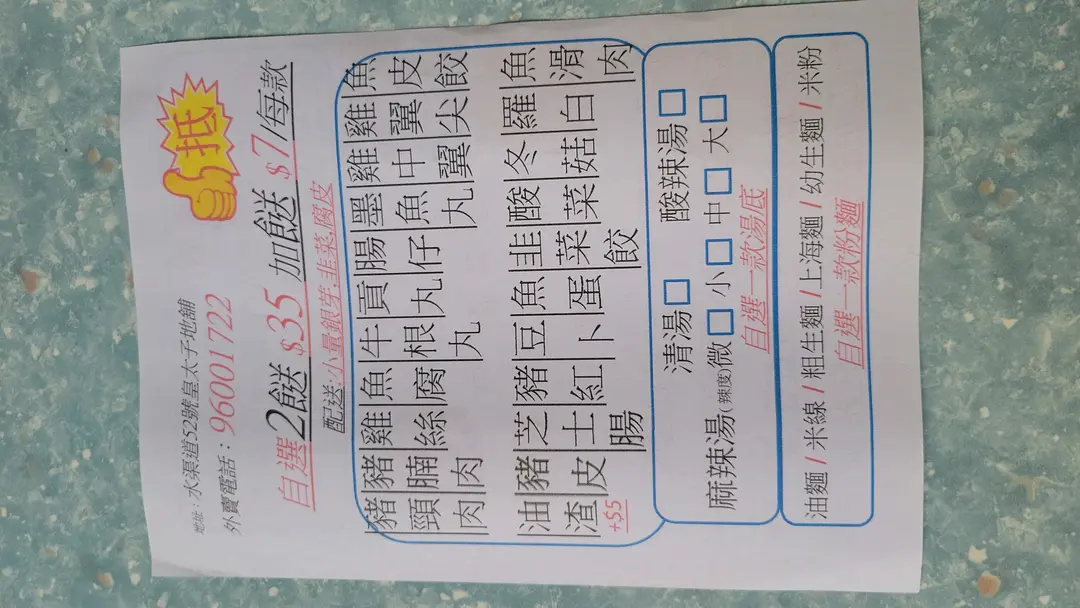 抵
地址：水渠道52號皇太子地舖
外賣電話：96001722
自選2餸$35 加餸 $7/每款
配送:小量銀芽,韭菜,腐皮
豬頸肉
豬腩肉
雞絲
魚腐
牛根丸
貢丸
腸仔
墨魚丸
雞中翼
雞翼尖
魚皮餃
油渣+$5
豬皮
芝士腸
豬紅
豆卜
魚蛋
韭菜餃
酸菜
冬菇
羅白
魚滑肉
清湯□ 酸辣湯□
麻辣湯(辣度)微□ 小□ 中□ 大□
自選一款湯底
油麵 / 米線 / 粗生麵 / 上海麵 / 幼生麵 / 米粉
自選一款粉麵